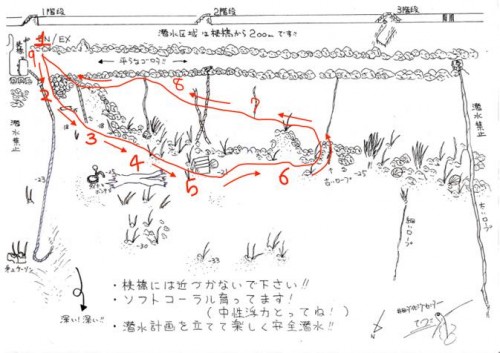 1階段
2階段
3階段
潜水区域は桟橋から200mです!!
EN/EX
平らなゴロタ!!
潜水禁止
潜水禁止
1
2
3
4
5
6
7
8
-18
-25
-30
-33
古いロープ
太いロープ
細いロープ
深い!深い!!
N
・桟橋には近づかないで下さい!!
・ソフトコーラル育ってます!
(中性浮力とってね!)
・潜水計画を立てて楽しく安全潜水!!